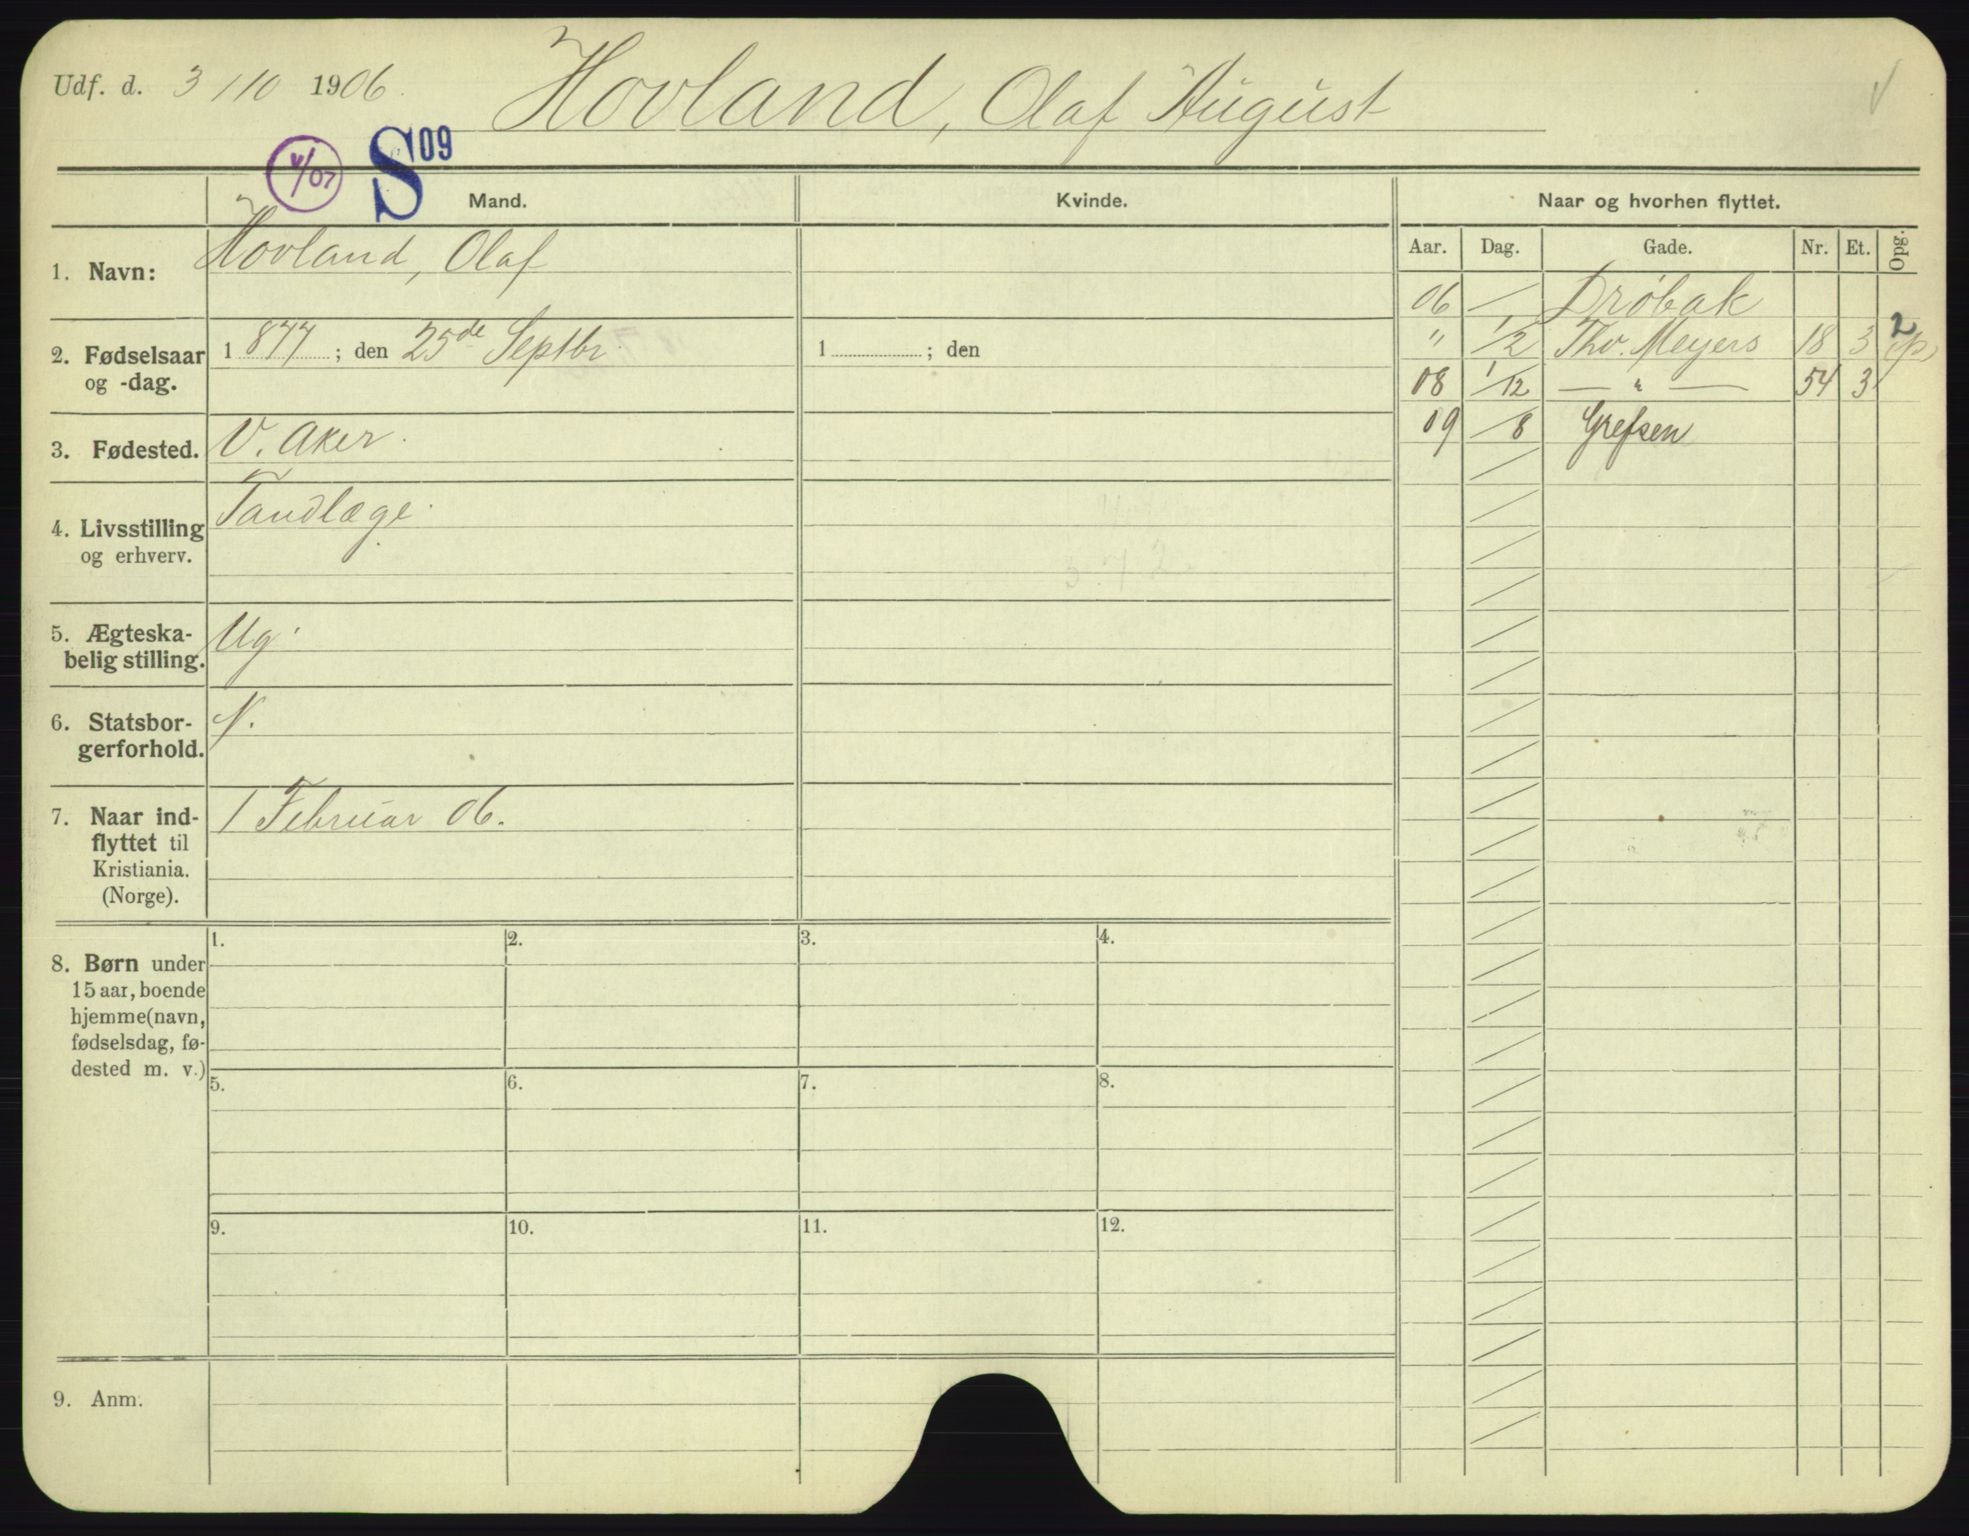 Udf. d. 3/10 1906.
Hovland, Olaf August
V/07
S 09
Mand. Kvinde. Naar og hvorhen flyttet.
Aar. Dag. Gade. Nr. Et. Opg.
1. Navn: Hovland, Olaf
06 Drøbak
" 1/2 Thv. Meyers 18 3 2
08 1/12 — " — 54 3
09 /8 Grefsen
2. Fødselsaar og -dag. 1877; den 25de Septbr.
1 ; den
3. Fødested. V. Aker.
4. Livsstilling og erhverv. Tandlæge.
5. Ægteska-
belig stilling. Ug.
6. Statsbor-
gerforhold. N.
7. Naar ind-
flyttet til
Kristiania.
(Norge). 1 Februar 06.
8. Børn under
15 aar, boende
hjemme (navn,
fødselsdag, fø-
dested m. v.)
1. 2. 3. 4.
5. 6. 7. 8.
9. 10. 11. 12.
9. Anm.